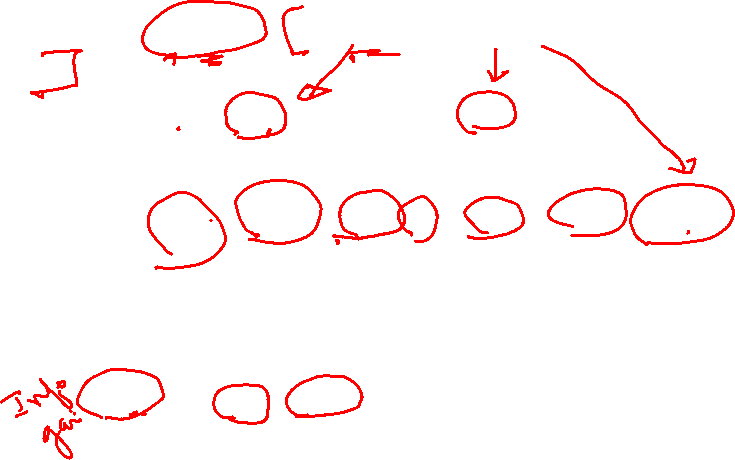 Info
gai